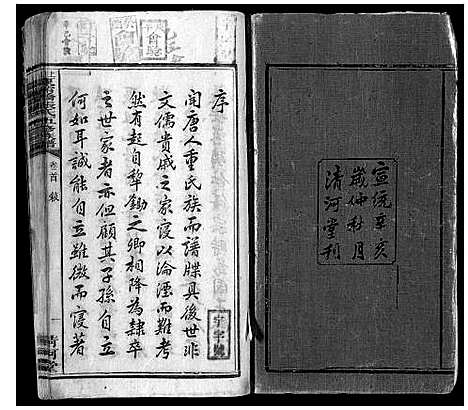 宣統辛亥
歲仲秋月
清河堂刊
序
聞唐人重氏族而譜牒具後世非
文儒貴戚之家寖以淪湮而難考
然有起自犁鋤之鄉相降為隸卒
之世家者亦但顧其子孫自立
何如耳誠能自立雖微而寖著
宇字號
卷首
清河堂